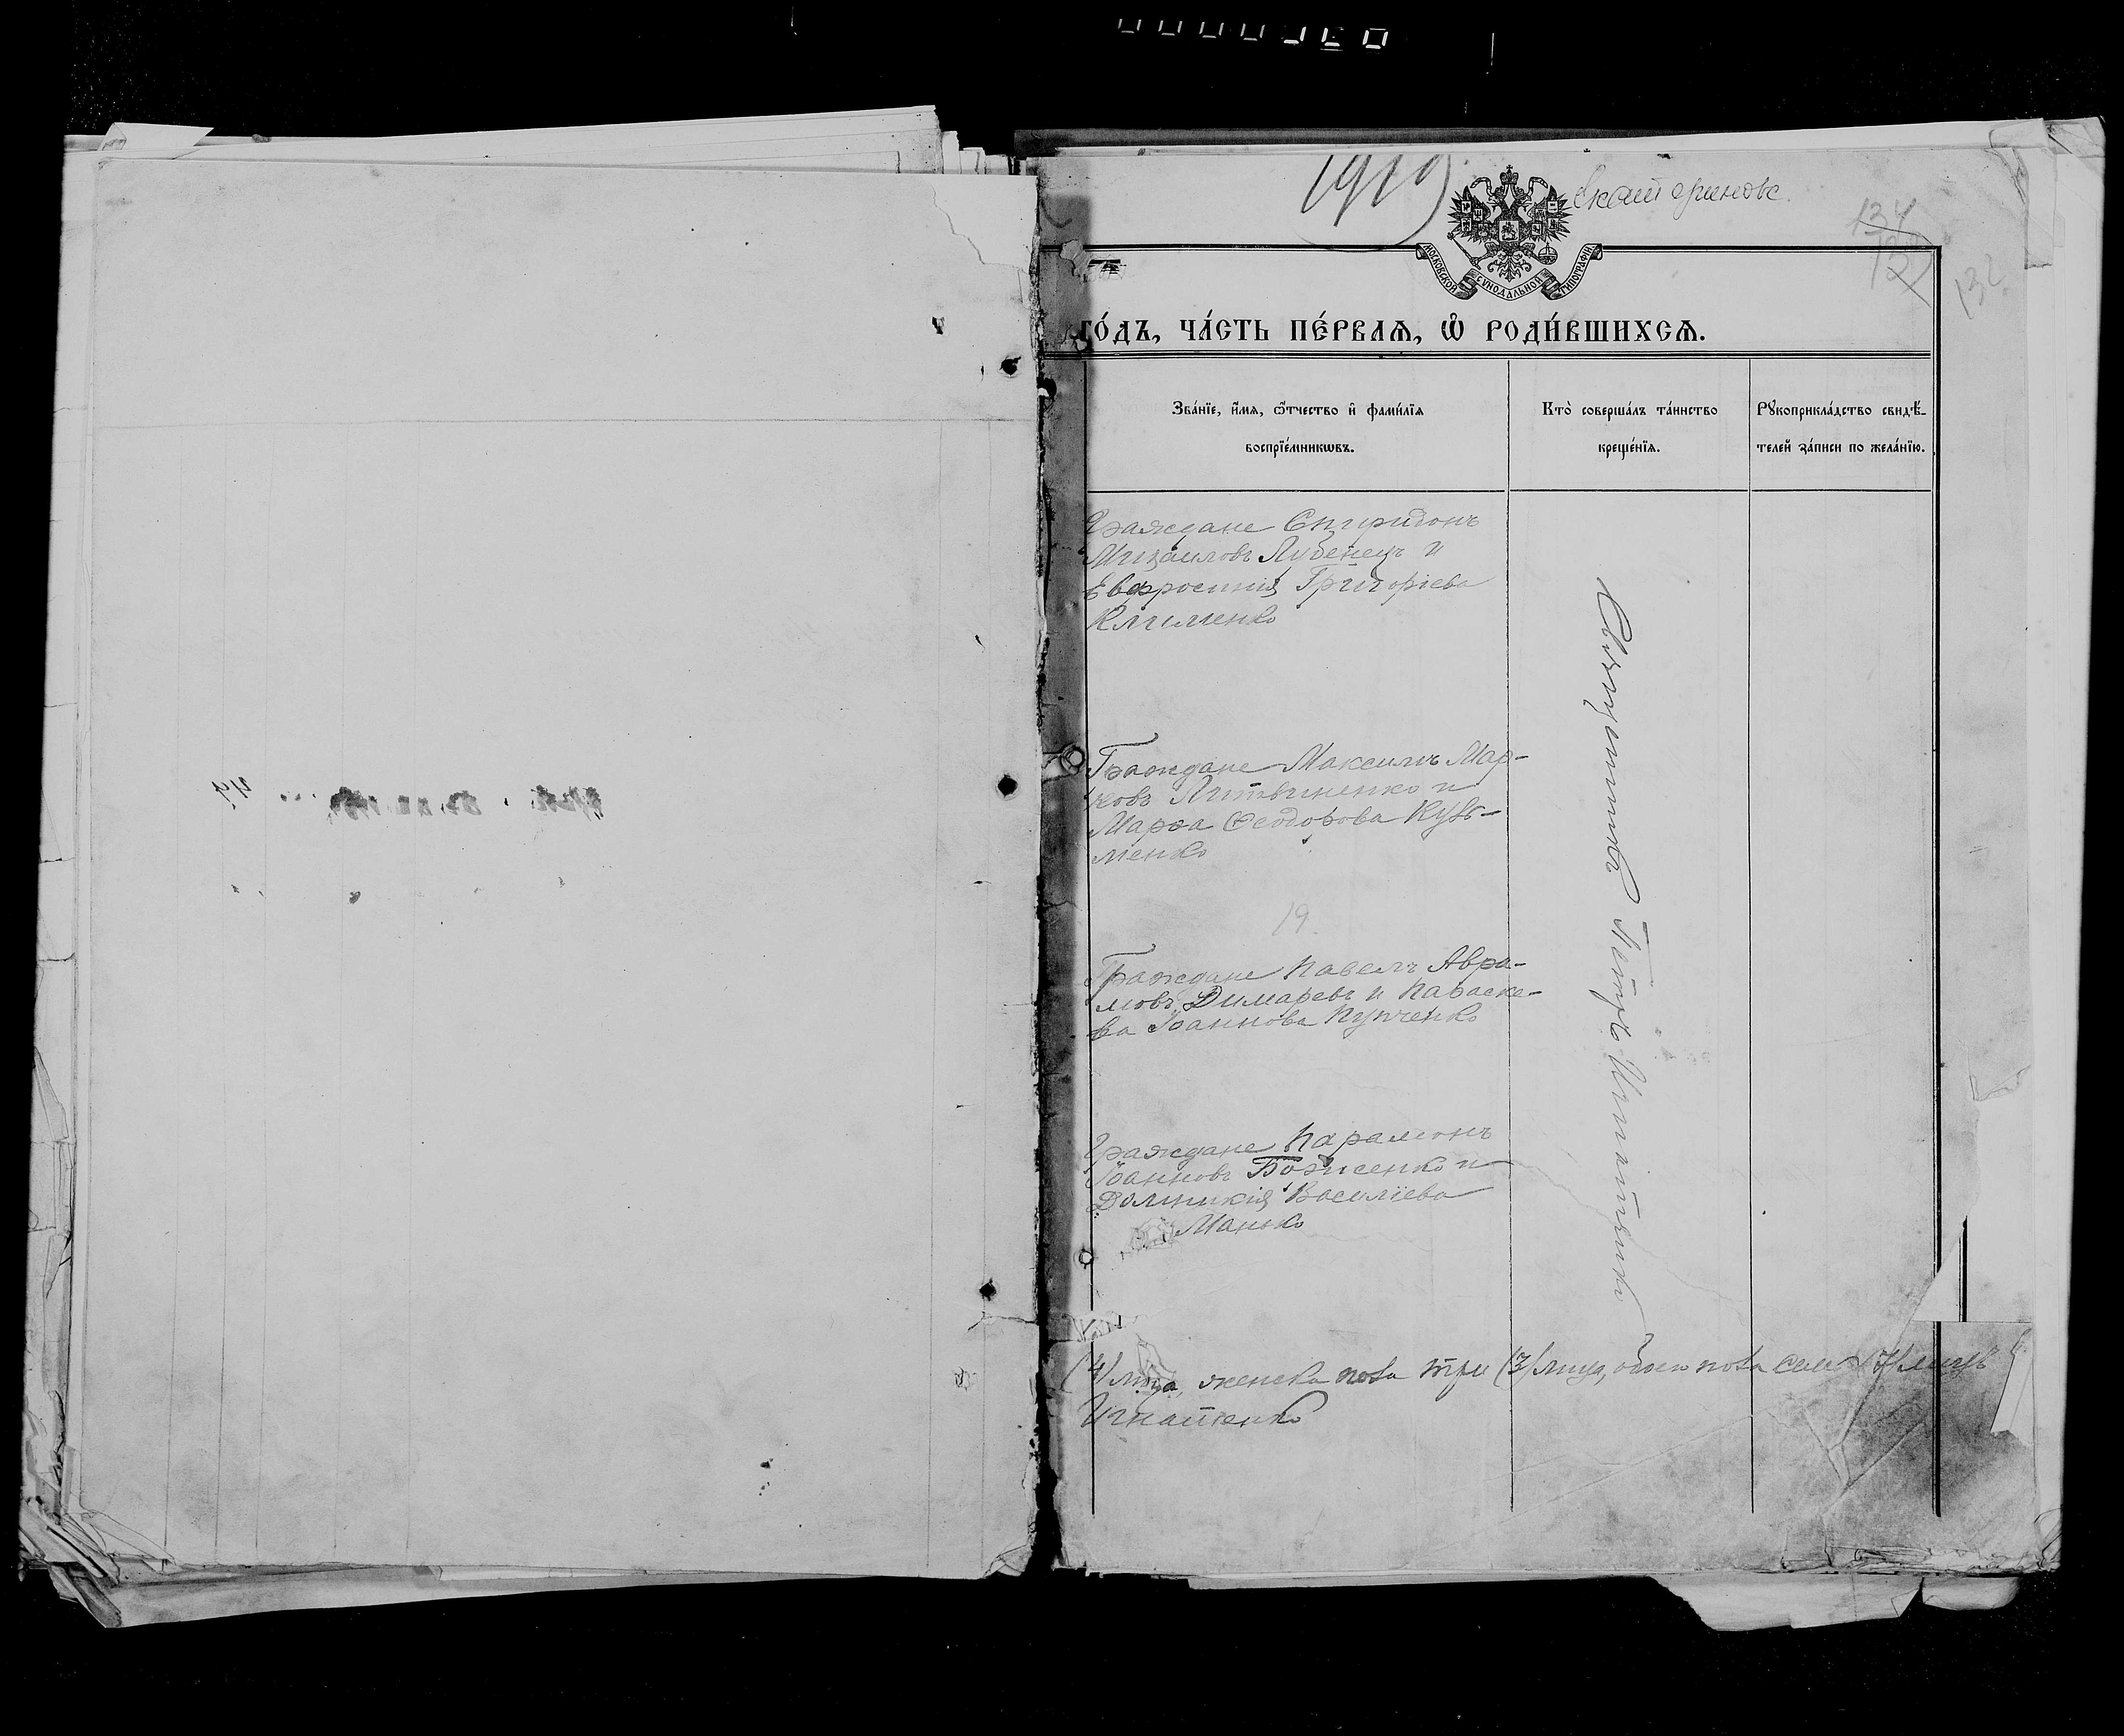 1919
Екатериновс
134
132
МОСКОВСКОЙ СѴНОДАЛЬНОЙ ТИПОГРАФІИ
го́дъ, ча́сть пе́рваѧ, ѡ҆ роди́вшихсѧ.
Зва́нїе, и҆́мѧ, ѻ҆́тчество и҆ фами́лїѧ
воспрїе́мникѡвъ.
Кто̀ соверша́лъ та́инство
креще́нїѧ.
Рꙋкоприкла́дство свидѣ́-
телей за́писи по жела́нїю.
Граждане Спиридонъ
Михаиловъ Лубенецъ и
Евфросинія Григоріева
Клименко
Граждане Максимъ Мар-
ковъ Литвиненко и
Марѳа Ѳеодорова Кузь-
менко
19.
Граждане Павелъ Авра-
мовъ Димаревъ и Параске-
ва Іоаннова Купченко
Граждане Парамонъ
Іоанновъ Божченко и
Домникія Василіева
Манько
Священникъ Петръ Игнатенко
(4) лица, женска пола три (3) лица, обоего пола семь (7) лицъ
Игнатенко